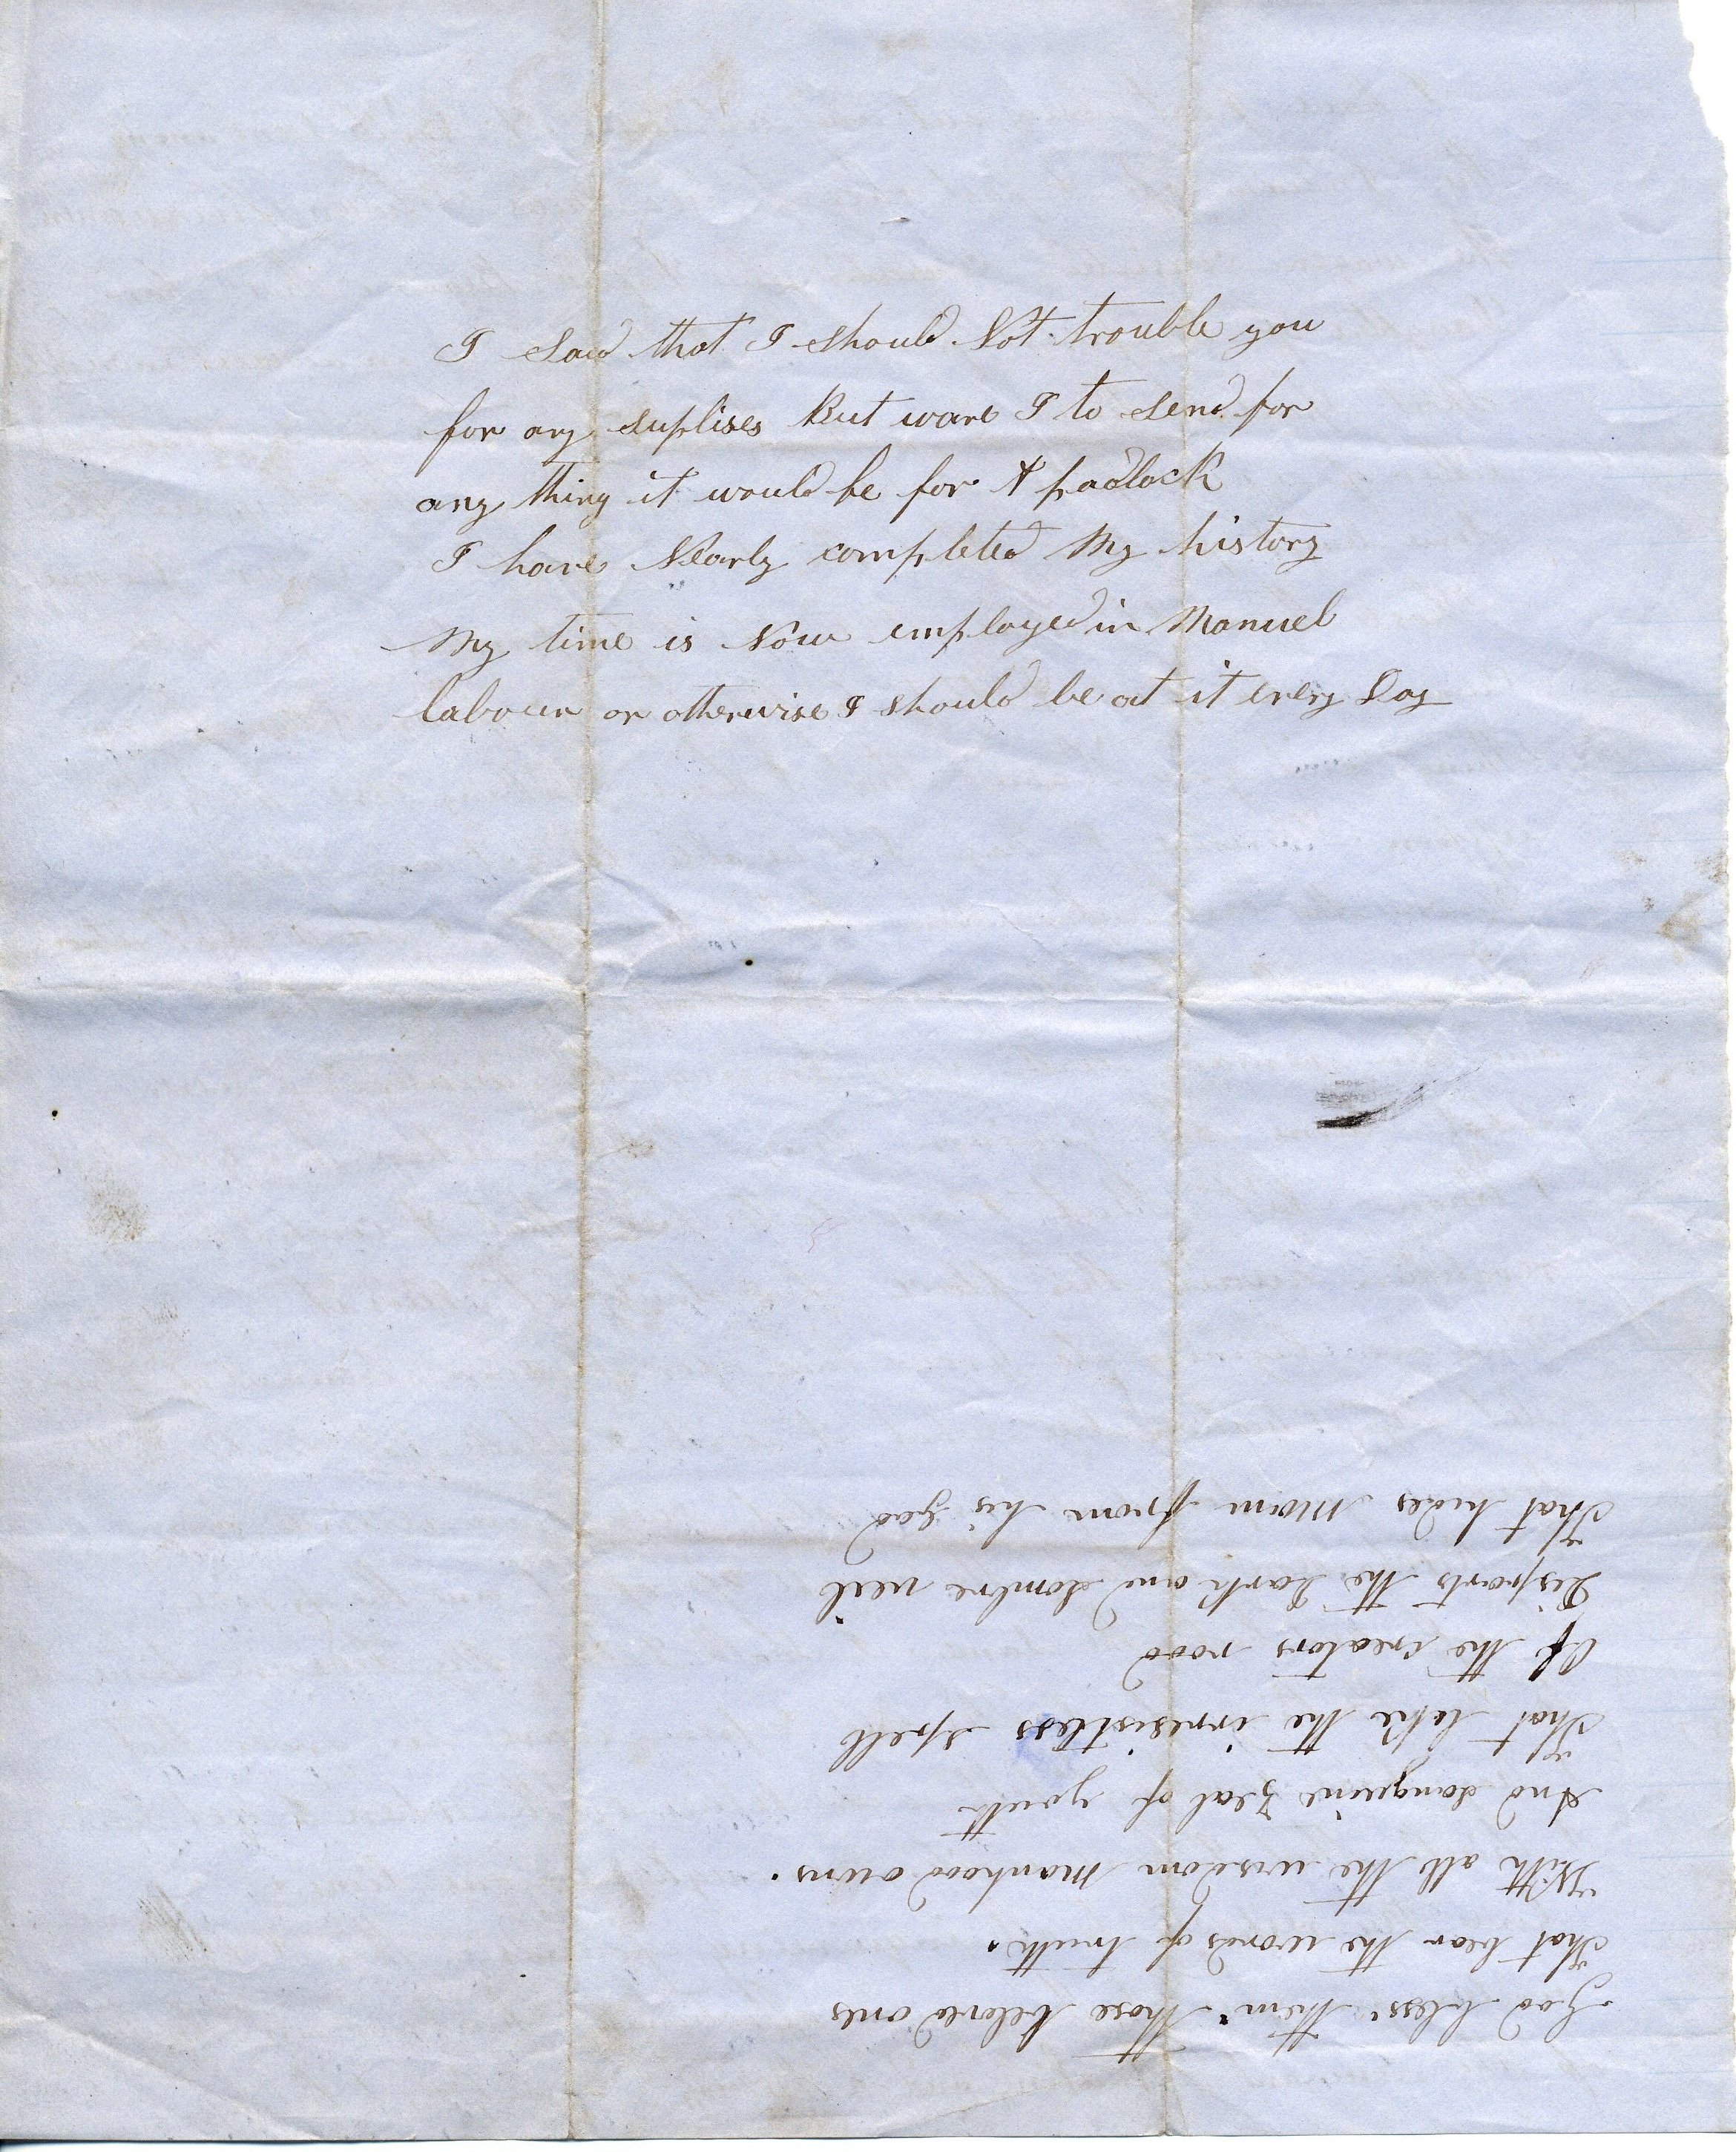 I said that I should Not trouble you
for any suplises But ware I to send for
any thing it would be for A padlock
I have Nearly completed My history
My time is Now employed in Manuel
labour or otherwise I should be at it every Day
God bless' them' those beloved ones
That bear the words of truth.
With all the wisdom Manhood owns.
And sanguine Zeal of youth
That like the irresistless spell
Of the Creators rood
Disparts the dark and sombre veil
That hides Man from his god